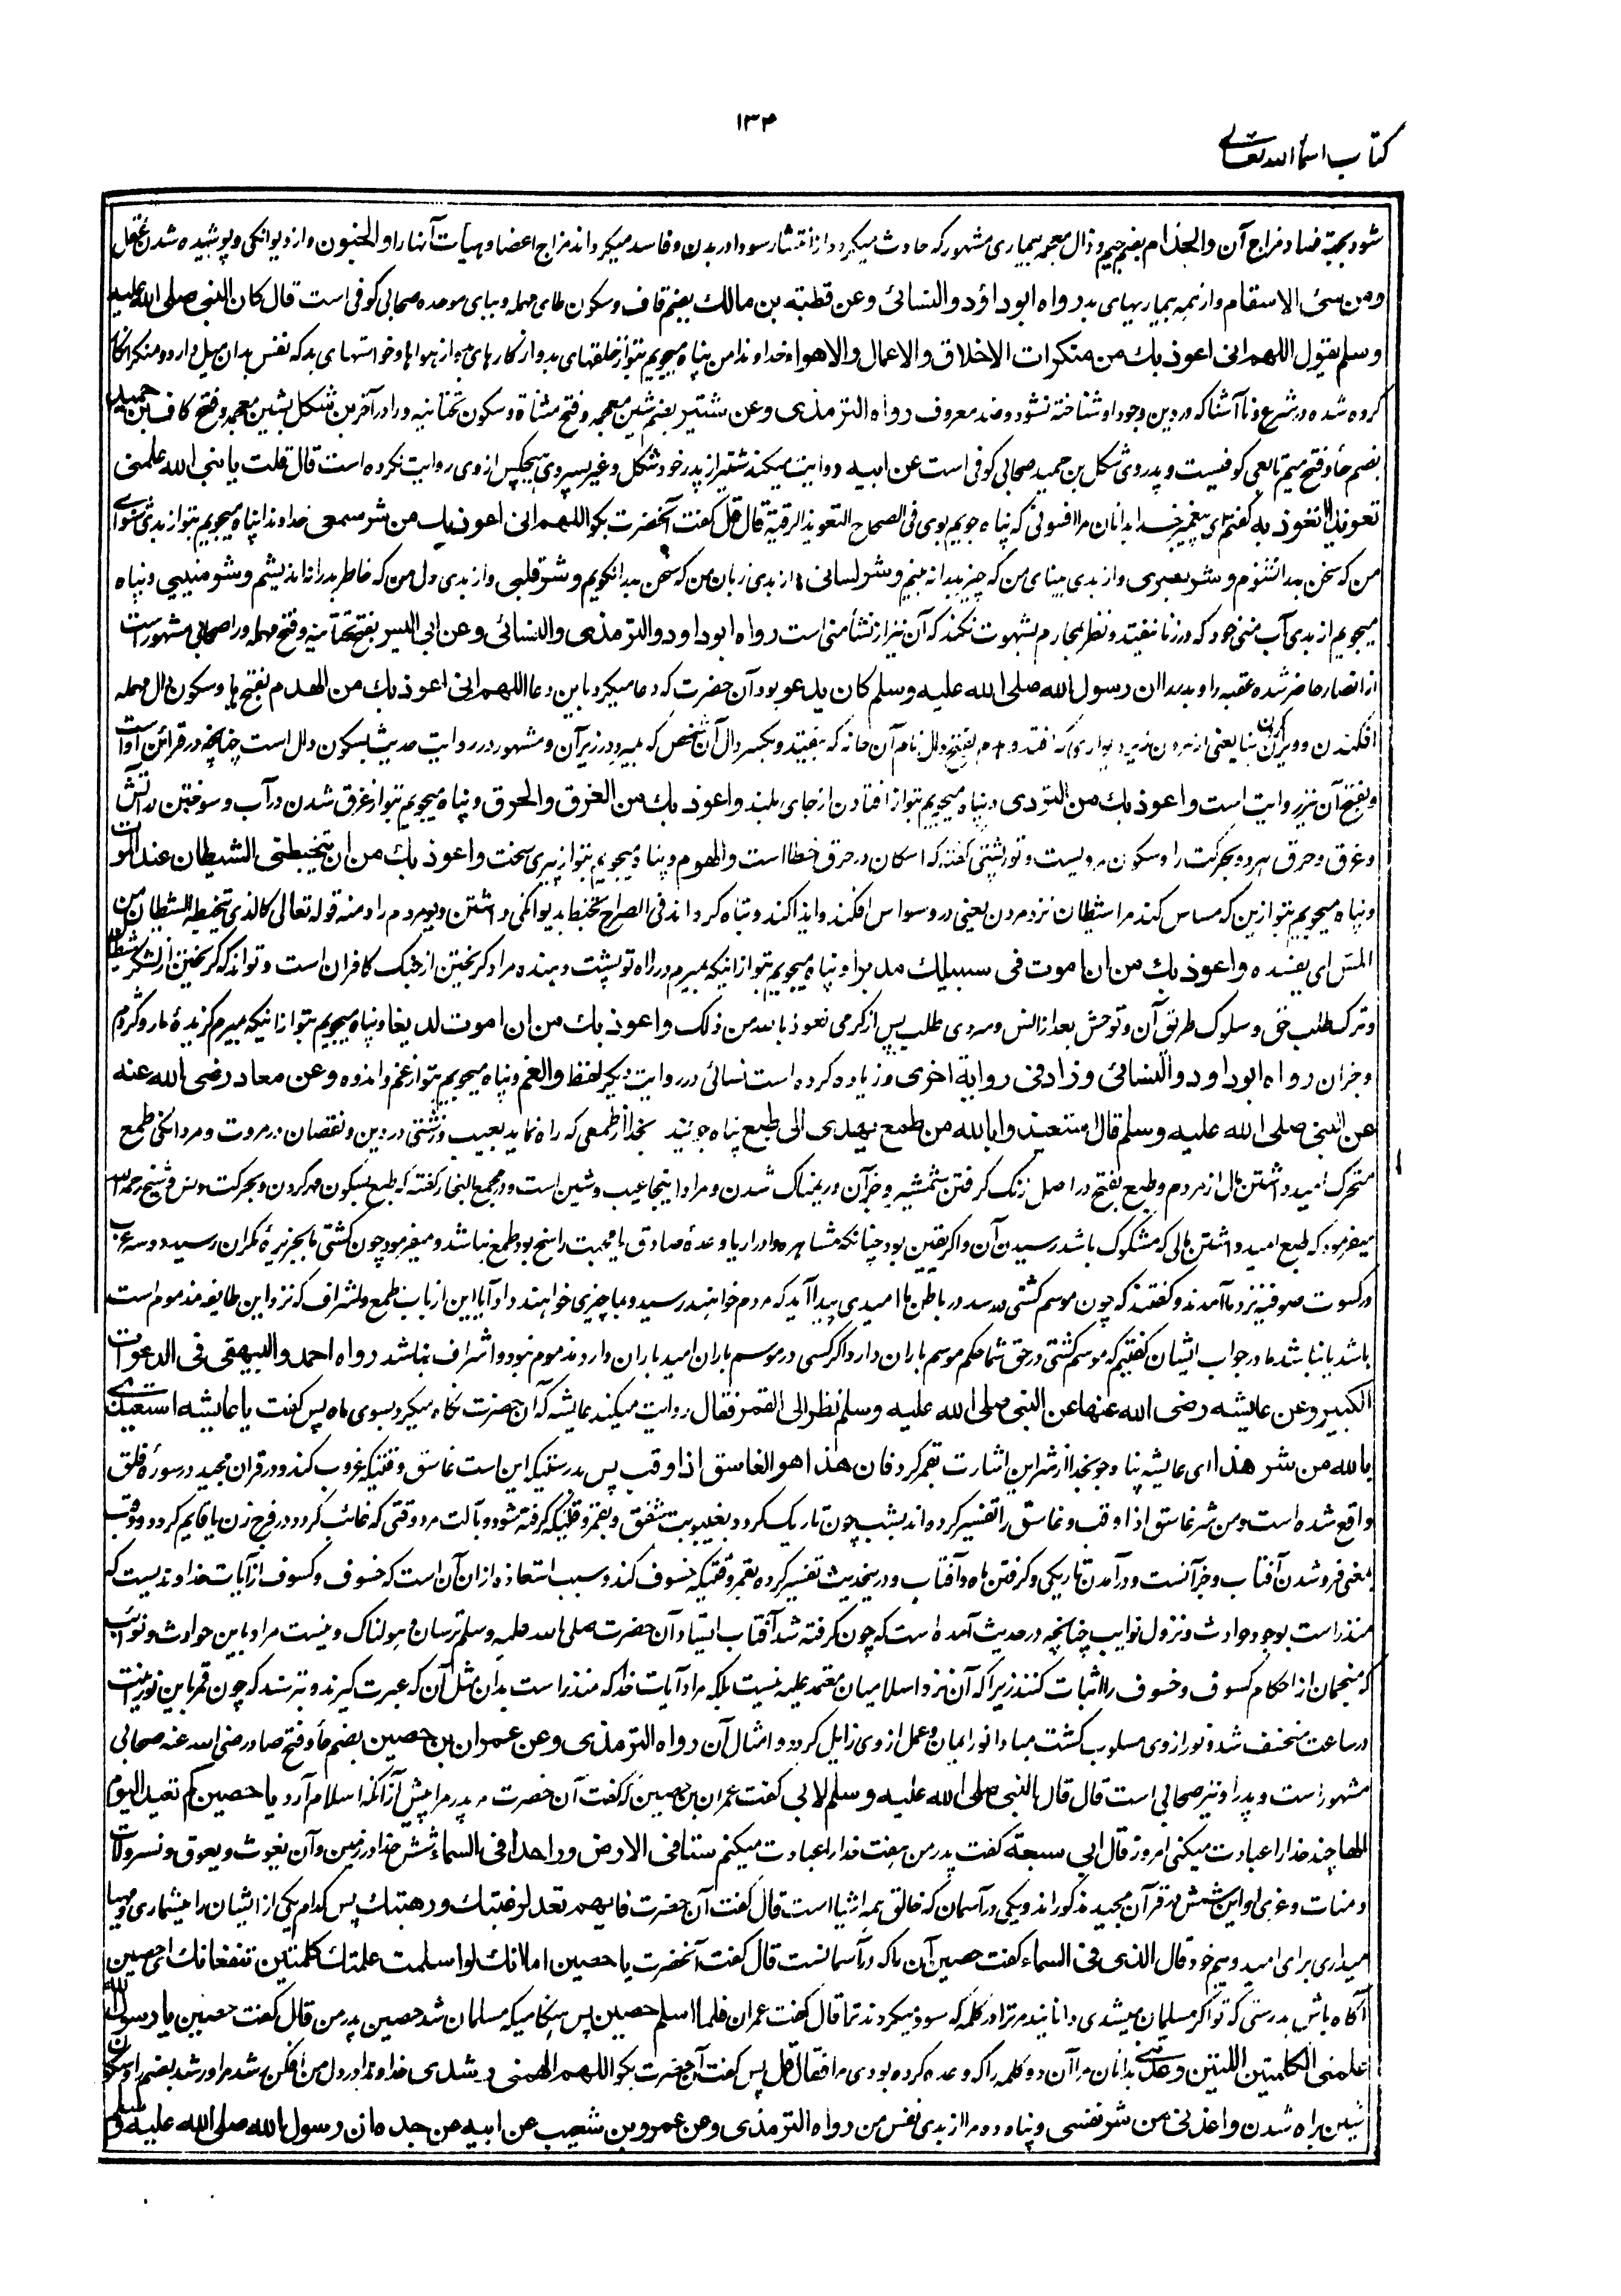 ۱۳۴
کتاب اسماء الله تعالی
شود بجهة فساد مزاج آن والجذام بضم جیم و ذال معجمه بیماری مشهور که حادث میگردد از انتشار سودا در بدن و فاسد میگرداند مزاج اعضا و هیأت آنها را والجنون و از دیوانگی و پوشیده شدن عقل
ومن سیئ الاسقام و از همه بیماریهای بد رواه ابوداؤد والنسائی وعن قطبة بن مالك بضم قاف و سکون طای مهمله و ببای موحده صحابی کوفی است قال کان النبی صلی الله علیه
وسلم یقول اللهم انی اعوذ بك من منکرات الاخلاق والاعمال والاهواء خداوندا من پناه میجویم بتو از خلقهای بد و از کارهای بد و از هواها و خواستهای بد که نفس بدان میل دارد و منکر انکار
کرده شده در شرع و ناآشنا که در دین وجود او شناخته نشود و ضد معروف رواه الترمذی وعن شتیر بضم شین معجمه و فتح مثناة و سکون تحتانیه و را در آخر بن شکل بشین معجمه و فتح کاف بن حمید
بضم حا و فتح میم تابعی کوفیست و پدر وی شکل بن حمید صحابی کوفی است عن ابیه روایت میکند شتیر از پدر خود شکل و غیر پسر وی هیچکس از وی روایت نکرده است قال قلت یا نبی الله علمنی
تعویذا اتعوذ به گفتم ای پیغمبر خدا بدانان مرا افسونی که پناه جویم بوی فی الصحاح التعویذ الرقیة قال قل گفت آنحضرت بگو اللهم انی اعوذ بك من شر سمعی خداوندا پناه میجویم بتو از بدی شنوای
من که سخن بد نشنوم و شر بصری و از بدی بینای من که چیز بد نه بینم و شر لسانی و از بدی زبان من که سخن بد نگویم و شر قلبی و از بدی دل من که خاطر بد را نه اندیشم و شر منیی و پناه
میجویم از بدی آب منی خود که در زنا نیفتد و نظر بمحارم بشهوت نکند که آن نیز از نشأ منی است رواه ابوداود والترمذی والنسائی وعن ابی الیسر بفتح تحتانیه و فتح مهمله و را صحابی مشهور است
از انصار حاضر شده عقبه را و بدر را ان رسول الله صلی الله علیه وسلم کان یدعو بود آن حضرت که دعا میکرد باین دعا اللهم انی اعوذ بك من الهدم بفتح ها و سکون دال مهمله
افکندن و ویران کردن بنا یعنی از مردن زیر دیواری که افتد و هدم بفتح دال نام آن خانه که بیفتد و بکسر دال آن شخص که بمیرد در زیر آن و مشهور در روایت حدیث بسکون دال است چنانچه در قرائن اوست
و بفتح آن نیز روایت است واعوذ بك من التردی و پناه میجویم بتو از افتادن از جای بلند واعوذ بك من الغرق والحرق و پناه میجویم بتو از غرق شدن در آب و سوختن در آتش
و غرق و حرق هر دو بحرکت را و سکون مرویست و تورپشتی گفته که اسکان در حرق خطا است والهرم و پناه میجویم بتو از پیری سخت واعوذ بك من ان یتخبطنی الشیطان عند الموت
و پناه میجویم بتو ازین که مساس کند مرا شیطان نزد مردن یعنی در وسواس افکند و ایذا کند و تباه گرداند فی الصراح تخبط بدیوانگی داشتن دیو مردم را و منه قوله تعالی کالذی یتخبطه الشیطان من
المس ای یفسده واعوذ بك من ان اموت فی سبیلك مدبرا و پناه میجویم بتو از انیکه بمیرم در راه تو پشت دهنده مراد گریختن از جنگ کافران است و تواند که گریختن از لشکر شیطان
و ترک طلب حق و سلوک طریق آن و توحش بعد از انس و سردی طلب پس از گرمی نعوذ بالله من ذلک واعوذ بك من ان اموت لدیغا و پناه میجویم بتو از انیکه بمیرم گزیدهٔ مار و کژدم
و جز آن رواه ابوداود والنسائی وزاد فی روایة اخری و زیاده کرده است نسائی در روایت دیگر لفظ والغم و پناه میجویم بتو از غم و اندوه وعن معاذ رضی الله عنه
عن النبی صلی الله علیه وسلم قال استعیذوا بالله من طمع یهدی الی طبع پناه جوئید بخدا از طمعی که راه نماید بعیب و زشتی در دین و نقصان در مروت و مردانگی طمع
متحرک امید داشتن مال از مردم و طبع بفتح در اصل زنگ گرفتن شمشیر و جز آن و ریمناک شدن و مراد اینجا عیب و شین است و در مجمع البحار گفته که طبع بسکون مهر کردن و بحرکت دنس و شیخ رحمه الله
میفرمود که طمع امید داشتن مالی که مشکوک باشد رسیدن آن و اگر یقین بود چنانکه مشاهره و ادرار یا وعدهٔ صادق یا محبت راسخ بود طمع نباشد و میفرمود چون کشتی ما بجزیرهٔ کمران رسید دو سه عرب
در کسوت صوفیه نزد ما آمدند و گفتند که چون موسم کشتی میرسد در باطن ما امیدی پیدا آید که مردم خواهند رسید و بما چیزی خواهند داد آیا این از باب طمع و اشراف که نزد این طایفه مذموم است
باشد یا نباشد ما در جواب ایشان گفتیم که موسم کشتی در حق شما حکم موسم باران دارد اگر کسی در موسم باران امید باران دارد مذموم نبود و اشراف نباشد رواه احمد والبیهقی فی الدعوات
الکبیر وعن عایشه رضی الله عنها عن النبی صلی الله علیه وسلم نظر الی القمر فقال روایت میکند عایشه که آن حضرت نگاه میکرد بسوی ماه پس گفت یا عایشه استعیذی
بالله من شر هذا ای عایشه پناه جو بخدا از شر این اشارت بقمر کرد فان هذا هو الغاسق اذا وقب پس بدرستیکه این است غاسق وقتیکه غروب کند و در قران مجید در سورهٔ فلق
واقع شده است ومن شر غاسق اذا وقب و غاسق را تفسیر کرده اند بشب چون تاریک گردد بغیبوبت شفق و بقمر وقتیکه گرفته شود و بآلت مرد وقتی که غائب گردد در فرج زن یا قایم گردد و وقب
بمعنی فرو شدن آفتاب و جز آنست و در آمدن تاریکی و گرفتن ماه و آفتاب و در ینحدیث تفسیر کرده بقمر وقتیکه خسوف کند و سبب استعاذه ازان آن است که خسوف و کسوف از آیات خداوندیست که
منذر است بوجود حوادث و نزول نوایب چنانچه در حدیث آمده است که چون گرفته شد آفتاب ایستاد آن حضرت صلی الله علیه وسلم ترسان و هولناک و نیست مراد باین حوادث و نوائب
که منجمان از احکام کسوف و خسوف را اثبات کنند زیرا که آن نزد اسلامیان معتمد علیه نیست بلکه مراد آیات خدا که منذر است بدان مثل آن که عبرت گیرند و بترسند که چون قمر باین نورانیت
در ساعت منخسف شد و نور از وی مسلوب گشت مبادا نور ایمان و عمل از وی زایل گردد و امثال آن رواه الترمذی وعن عمران بن حصین بضم حا و فتح صاد رضی الله عنه صحابی
مشهور است و پدر او نیز صحابی است قال قال النبی صلی الله علیه وسلم لابی گفت عمران بن حصین که گفت آن حضرت مر پدر مرا پیش از آنکه اسلام آرد یا حصین کم تعبد الیوم
الها چند خدا را عبادت میکنی امروز قال ابی سبعة گفت پدر من هفت خدا را عبادت میکنم ستا فی الارض وواحدا فی السماء شش خدا در زمین و آن یغوث و یعوق و نسر و لات
و منات و عزی و این شش در قرآن مجید مذکور اند و یکی در آسمان که خالق همه اشیا است قال گفت آن حضرت فایهم تعد لرغبتك ورهبتك پس کدام یکی از ایشان را میشماری و مهیا
میداری برای امید و بیم خود قال الذی فی السماء گفت حصین آن را که در آسمانست قال گفت آنحضرت یا حصین اما انك لو اسلمت علمتك کلمتین تنفعانك ای حصین
آگاه باش بدرستی که تو اگر مسلمان میشدی دانانیدم ترا دو کلمه که سود میکردند ترا قال گفت عمران فلما اسلم حصین پس هنگامیکه مسلمان شد حصین پدر من قال گفت حصین یا رسول الله
علمنی الکلمتین اللتین وعدتنی بدانان مرا آن دو کلمه را که وعده کرده بودی مرا فقال قل پس گفت آن حضرت بگو اللهم الهمنی رشدی خداوندا در دل من افگن رشد مرا و رشد بضم را و سکون
شین براه شدن واعذنی من شر نفسی و پناه ده مرا از بدی نفس من رواه الترمذی وعن عمرو بن شعیب عن ابیه عن جده ان رسول الله صلی الله علیه وسلم